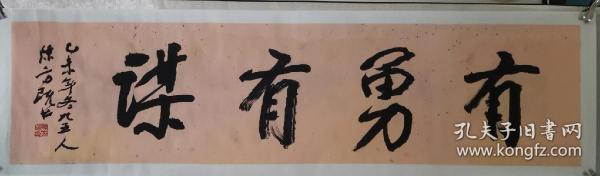 有勇有谋
乙未年冬九五人
孔夫子旧书网
www.kongfz.com